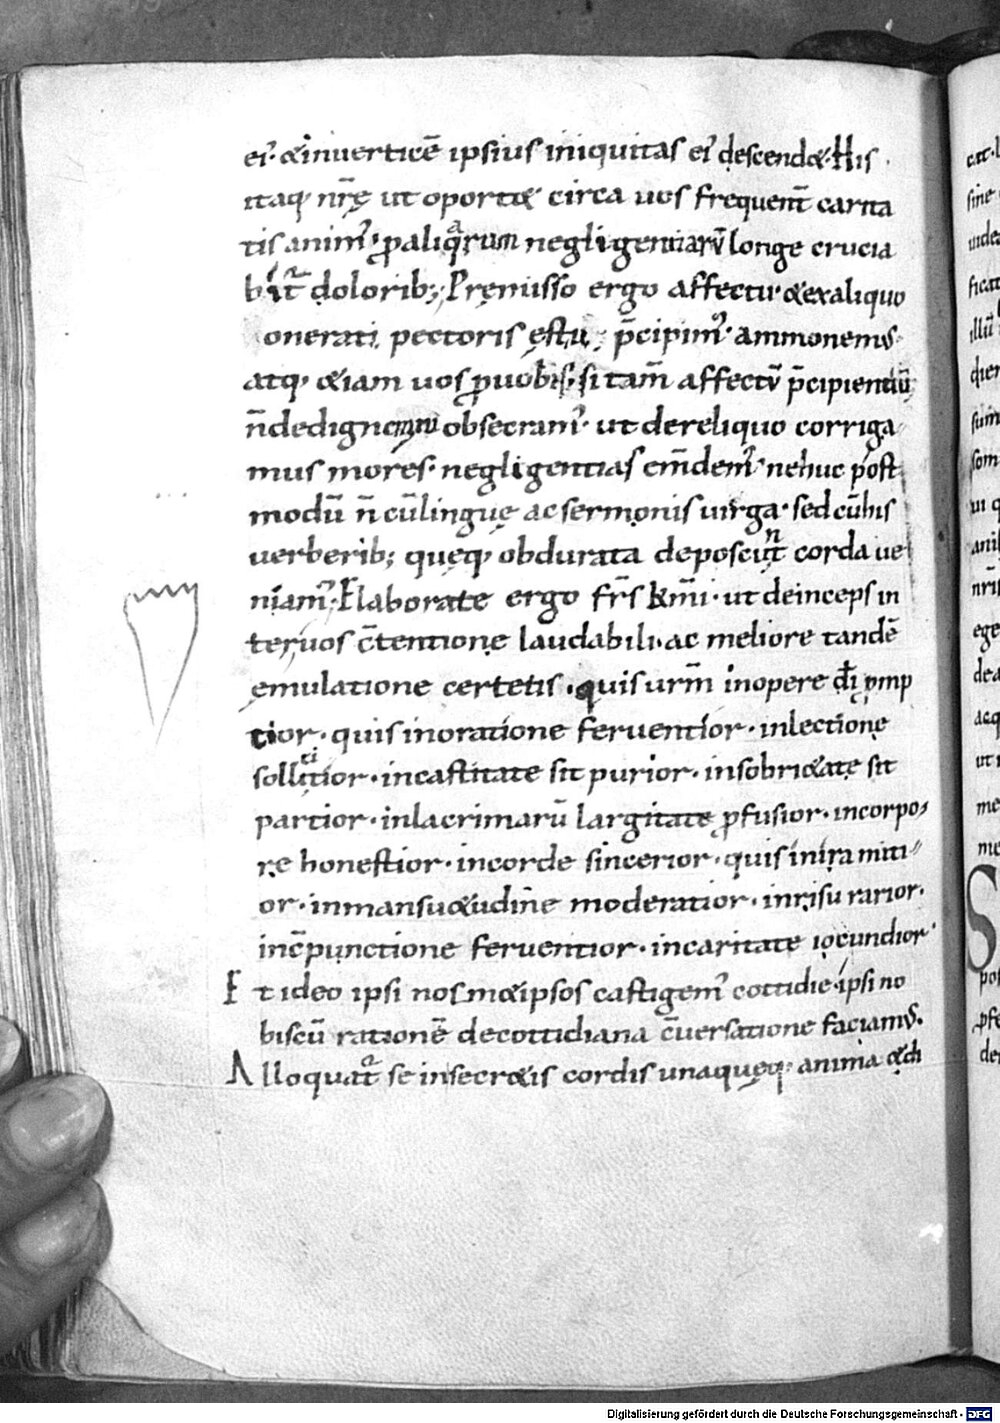 ei᷒· &inuerticē ipsius iniquitas ei᷒ descend&· His
itaq· nr̄ę ut oport& circa uos frequent̄ carita
tis animi᷒ ꝑ aliqͣrum negligentiarū longe crucia
dolorib; Pręmisso ergo affectu &exaliquo
onerati pectoris ęstu p̄cipim᷒ ammonemus
atq· &iam uos ꝓuobis si tam̄ affectū p̄cipientiū
n̄dedignamini obsecram᷒· ut dereliquo corriga
mus mores· negligentias em̄dem᷒ nehuc post
modū n̄ cū linguę ac sermonis uirga· sed cū his
uerberib; quęq· obdurata deposcunt corda ue
niam᷒· Elaborate ergo fr̄s km̄i· ut deinceps in
ter uos c̄tentione laudabili· ac meliore tandē
emulatione certetis· quis urm̄ inopere dī ꝓmp
tior· quis inoratione feruentior· inlectione
sollicitior· incastitate sit purior· insobri&ate sit
partior· inlacrimarū largitate ꝓfusior· incorpo
re honestior· incorde sincerior· quis inira miti
or· inmansu&udine moderatior· inrisu rarior·
inc̄punctione feruentior· incaritate iocundior·
Et ideo ipsi nosm&ipsos castigem᷒ cottidie· ipsi no
biscū rationē decottidiana c̄uersatione faciamus.
Alloquat᷑ se insecr&is cordis unaquęq· anima & di
Digitalisierung gefördert durch die Deutsche Forschungsgemeinschaft - DFG